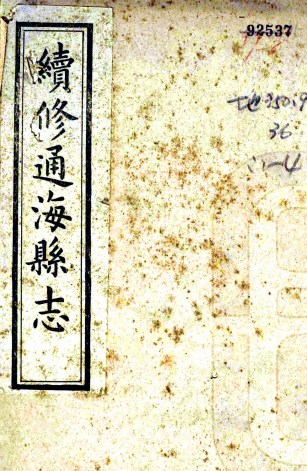 續修通海縣志
92537
地350.9
36